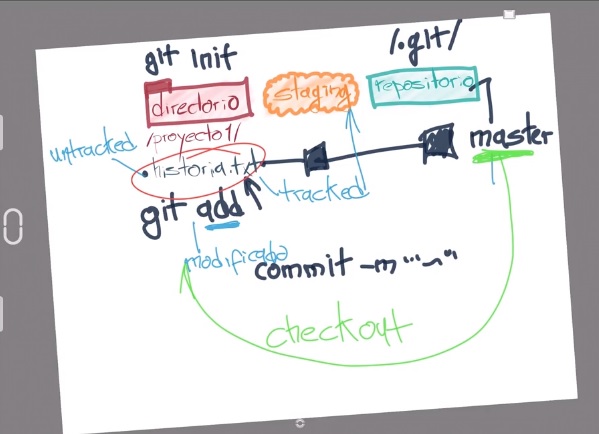 git init
/.git/
directorio
staging
repositorio
/proyecto1/
untracked
master
historia.txt
tracked
git add
modificado
commit -m "~"
checkout